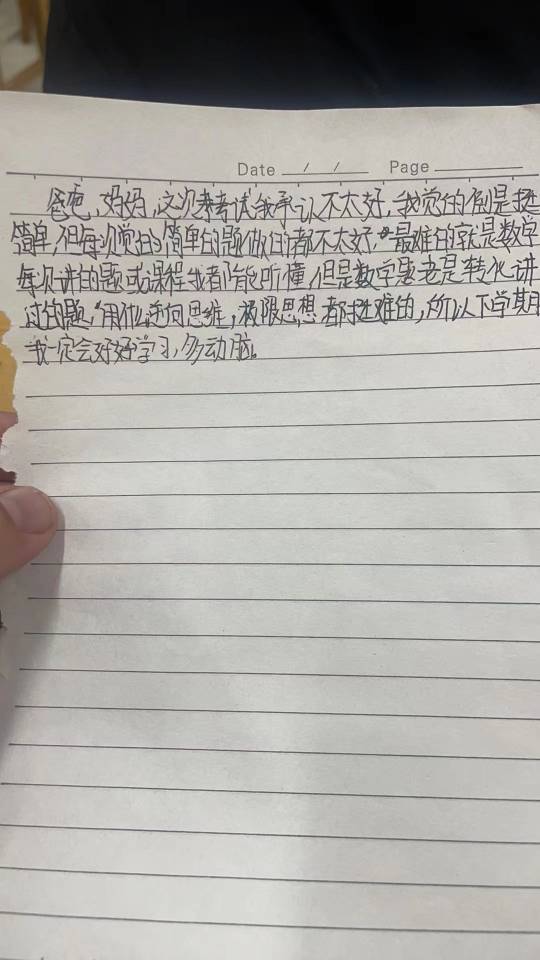 Date / / Page
爸爸、妈妈,这次考试我承认不太好,我觉的倒是挺
简单,但每次觉的简单的题做的都不太好,最难的就是数学
每次讲的题或课程我都能听懂,但是数学老是转化讲
过的题,用什么逆向思维,极限思想都挺难的,所以下学期
我一定会好好学习,多动脑。